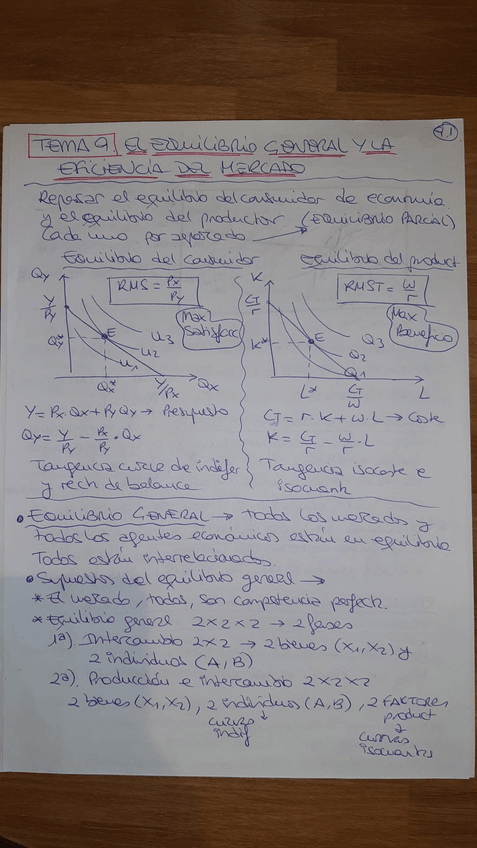 9.1
TEMA 9. EL EQUILIBRIO GENERAL Y LA
EFICIENCIA DEL MERCADO
Repasar el equilibrio del consumidor de economía
y el equilibrio del productor (EQUILIBRIO PARCIAL)
Cada uno por separado
Equilibrio del consumidor
Qy
RMS = Px/Py
Max
Satisfacc
Y/Py
Qy*
E
U3
U2
U1
Qx*
Y/Px
Qx
Y = Px·Qx + Py Qy → Presupuesto
Qy = Y/Py - Px/Py · Qx
Tangencia curva de indifer
y recta de balance
Equilibrio del product
K
RMST = w/r
Max
Beneficio
CT/r
K*
E
Q3
Q2
Q1
L*
CT/w
L
CT = r·K + w·L → Coste
K = CT/r - w/r · L
Tangencia isocoste e
isocuanta
• EQUILIBRIO GENERAL → todos los mercados y
todos los agentes económicos están en equilibrio
Todos están interrelacionados.
• Supuestos del equilibrio general →
* El mercado, todos, son competencia perfecta.
* Equilibrio general 2x2x2 → 2 fases
1ª) Intercambio 2x2 → 2 bienes (X1, X2) y
2 individuos (A, B)
2ª). Producción e intercambio 2x2x2
2 bienes (X1, X2), 2 individuos (A, B), 2 FACTORES
product
curvas
indif
curvas
isocuantas